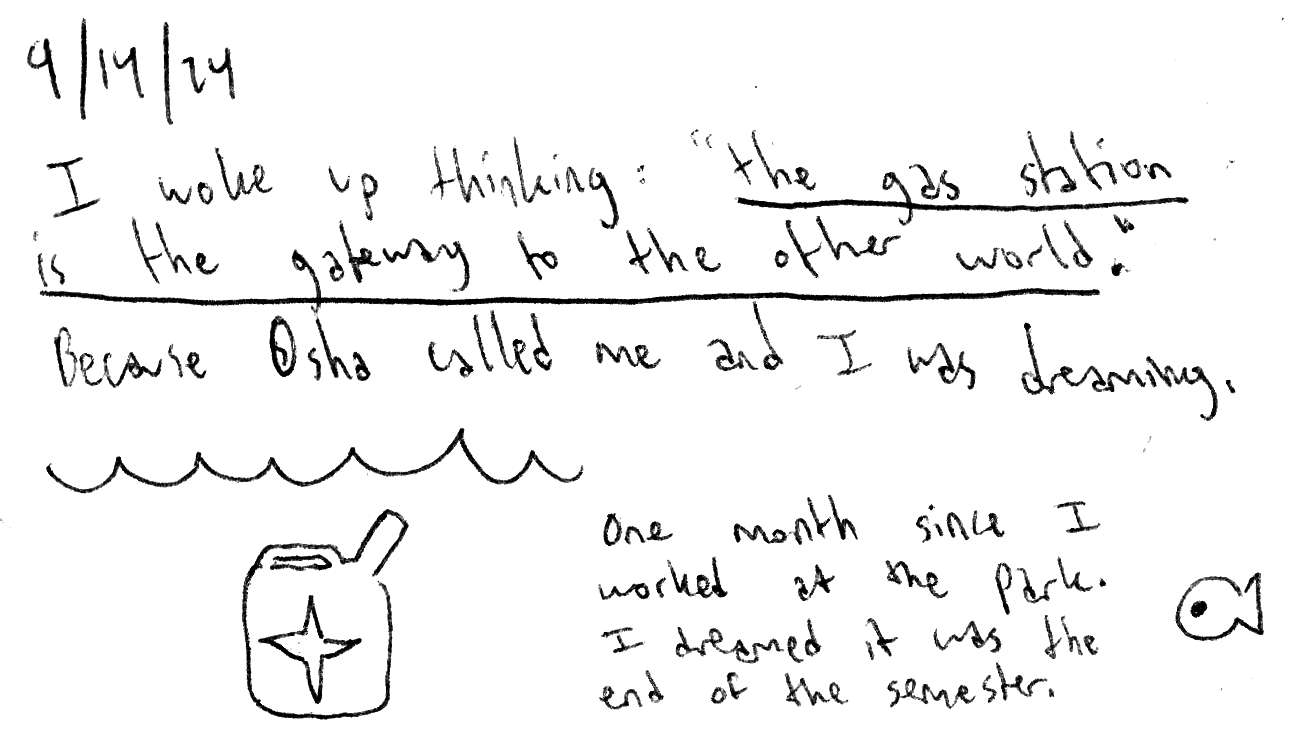 9/14/24
I woke up thinking: "the gas station
is the gateway to the other world."
Because Osha called me and I was dreaming.
One month since I
worked at the park.
I dreamed it was the
end of the semester.